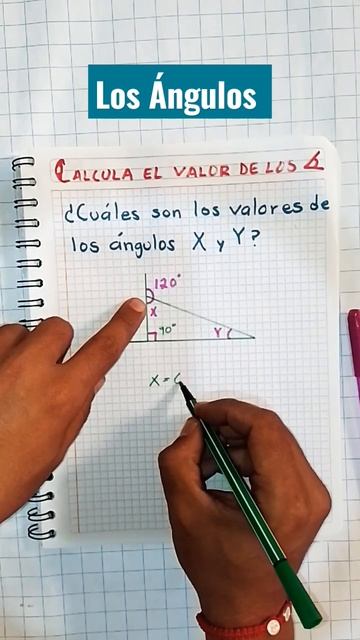 Los Ángulos
CALCULA EL VALOR DE LOS
¿Cuáles son los valores de
los ángulos X y Y?
120°
X
90°
Y
X = 6